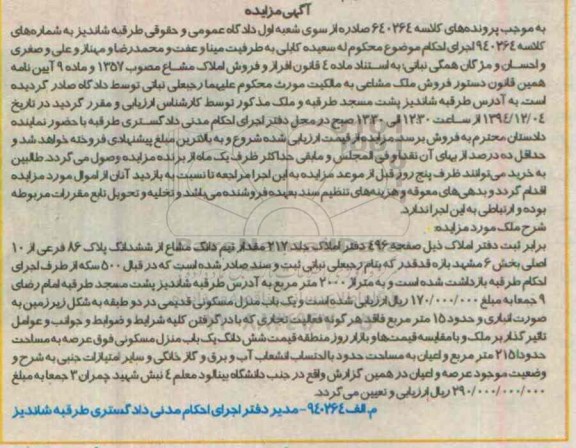 آگهی مزایده
به موجب پرونده‌های کلاسه ۶۴۰۲۶۴ صادره از سوی شعبه اول دادگاه عمومی و حقوقی طرقبه شاندیز به شماره‌های
کلاسه ۹۴۰۲۶۴ اجرای احکام موضوع محکوم له سعیده کابلی به طرفیت مینا و عفت و محمدرضا و مهناز و علی و صغری
و احسان و مژگان همگی نباتی به استناد ماده ۴ قانون افراز و فروش املاک مشاع مصوب ۱۳۵۷ و ماده ۹ آیین نامه
همین قانون دستور فروش ملک مشاعی به مالکیت مورث محکوم علیهما رجبعلی نباتی توسط دادگاه صادر گردیده
است. به آدرس طرقبه شاندیز پشت مسجد طرقبه و ملک مذکور توسط کارشناس ارزیابی و مقرر گردید در تاریخ
۱۳۹۴/۱۲/۰۴ از ساعت ۱۲:۳۰ الی ۱۳:۳۰ صبح در محل دفتر اجرای احکام مدنی دادگستری طرقبه با حضور نماینده
دادستان محترم به فروش برسد مزایده از قیمت ارزیابی شده شروع و به بالاترین مبلغ پیشنهادی فروخته خواهد شد و
حداقل ده درصد از بهای آن نقدا و فی المجلس و مابقی حداکثر ظرف یک ماه از برنده مزایده وصول می گردد. طالبین
به خرید می‌توانند ظرف پنج روز قبل از موعد مزایده به این اجرا مراجعه تا نسبت به بازدید آنان از اموال مورد مزایده
اقدام گردد و بدهی‌های معوقه و هزینه‌های تنظیم سند بعهده فروشنده می‌باشد و تخلیه و تحویل تابع مقررات مربوطه
بوده و ارتباطی به این اجرا ندارد.
شرح ملک مورد مزایده:
برابر ثبت دفتر املاک ذیل صفحه ۴۹۶ دفتر املاک جلد ۲۱۷ مقدار نیم دانگ مشاع از ششدانگ پلاک ۸۶ فرعی از ۱۰
اصلی بخش ۶ مشهد باره قدقدر که بنام رجبعلی نباتی ثبت و سند صادر شده است که در قبال ۵۰۰ سکه از طرف اجرای
احکام طرقبه بازداشت شده است و به متراژ ۲۰۰۰ متر مربع به آدرس طرقبه شاندیز پشت مسجد طرقبه امام رضای
۹ جمعا به مبلغ ۱۷۰/۰۰۰/۰۰۰ ریال ارزیابی شده است و یک باب منزل مسکونی قدیمی در دو طبقه به شکل زیرزمین به
صورت انباری و حدود ۱۵ متر مربع فاقد هر گونه فعالیت تجاری که با در گرفتن کلیه شرایط و ضوابط و جوانب و عوامل
تاثیر گذار بر ملک و با مقایسه قیمت‌ها و بازار روز منطقه قیمت شش دانگ یک باب منزل مسکونی فوق عرصه به مساحت
حدودا ۲۱۵ متر مربع و اعیان به مساحت حدود بالحتساب انشعاب آب و برق و گاز خانگی و سایر امتیازات جنبی به شرح و
وضعیت موجود عرصه و اعیان در همین گزارش واقع در جنب دانشگاه بینالود معلم ۴ نبش شهید چمران ۳ جمعا به مبلغ
۲۹۰/۰۰۰/۰۰۰/۰۰۰ ریال ارزیابی و تعیین می گردد.
م.الف ۹۴۰۲۶۴ - مدیر دفتر اجرای احکام مدنی دادگستری طرقبه شاندیز